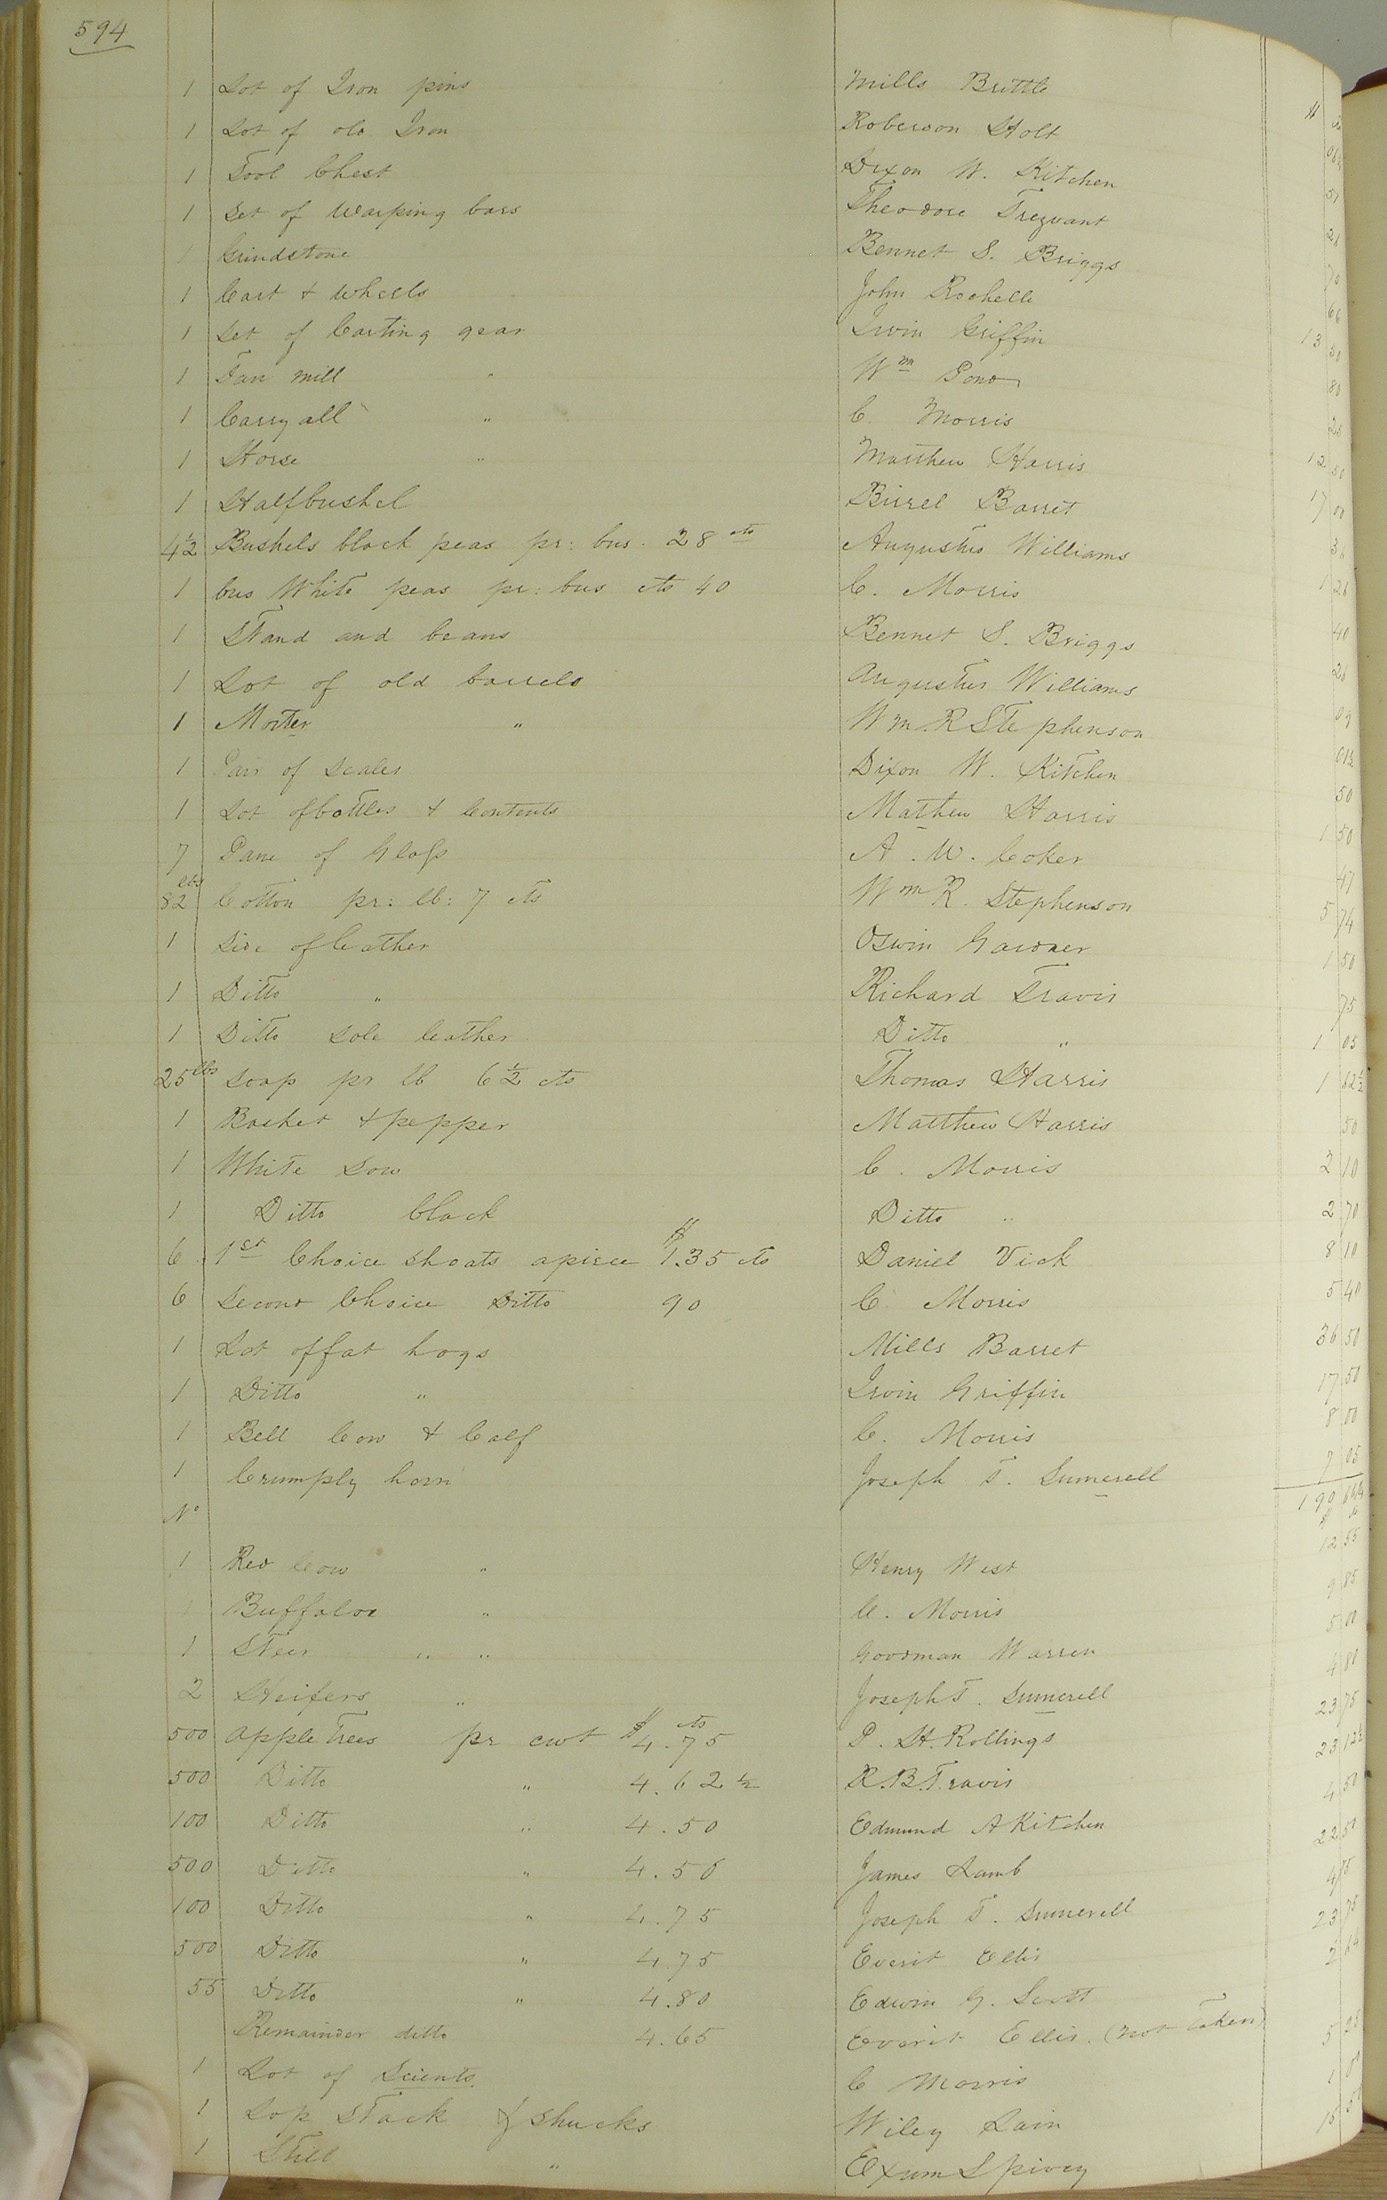 594
1 Lot of Iron pins Mills Brittle
1 Lot of old Iron Roberson Holt
1 Tool Chest Dixon W. Kitchen
1 Set of Warping bars Theodore Trezvant
1 Grindstone Bennet S. Briggs
1 Cart & Wheels John Rochelle
1 Set of Carting gear Irvin Griffin 13 50
1 Fan mill " Wm Pond 80
1 Carry all " C. Morris
1 Horse " Matthew Harris 12 50
1 Halfbushel Birrel Barret 17 00
4½ Bushels black peas pr: bus. 28 cts Augustus Williams
1 bus White peas pr: bus cts 40 C. Morris 1 26
1 Stand and beans Bennet S. Briggs 40
1 Lot of old barrels Augustus Williams 20
1 Morter " Wm. R Stephenson 09
1 Pair of Scales Dixon W. Kitchen 01½
1 Lot of bottles & Contents Mathew Harris 50
7 Pane of Glass A. W. Coker 1 50
82 lbs Cotton pr: lb: 7 cts Wm R. Stephenson 47
1 Side of leather Oswin Gardner 5 74
1 Ditto " Richard Travis 1 50
1 Ditto Sole leather Ditto " 75
25 lbs Soap pr lb 6½ cts Thomas Harris 1 05
1 Basket & pepper Matthew Harris 1 62½
1 White Sow C. Morris 50
1 Ditto black Ditto " 2 10
6 1st Choice Shoats apiece $1.35 cts Daniel Vick 2 70
6 Second Choice Ditto 90 C. Morris 8 10
1 Lot of fat hogs Mills Barret 5 40
1 Ditto " Irvin Griffin 36 50
1 Bell Cow & Calf C. Morris 17 50
1 Crumply horn Joseph T. Sumerell 8 00
7 05
No 190
1 Red Cow " Henry West 12 55
1 Buffaloe " C. Morris 9 85
1 Steer " " Goodman Warren 5 00
2 Heifers " Joseph T. Sumerell 4 00
500 apple Trees pr cwt $4.75 cts P. H. Rollings 23 75
500 Ditto " 4.62½ R.B.Travis 23 12½
100 Ditto " 4.50 Edmund A Kitchen 4 50
500 Ditto " 4.50 James Lamb 22 50
100 Ditto " 4.75 Joseph T. Sumerell 4 75
500 Ditto " 4.75 Everit Ellis 23 75
55 Ditto " 4.80 Edwin G. Scott 2 64
Remainder ditto 4.65 Everit Ellis. (not taken)
1 Lot of Scients C Morris 5 25
1 Top Stack of Shucks Wiley Lain 1 00
1 Still " Exum Spivey 15 50